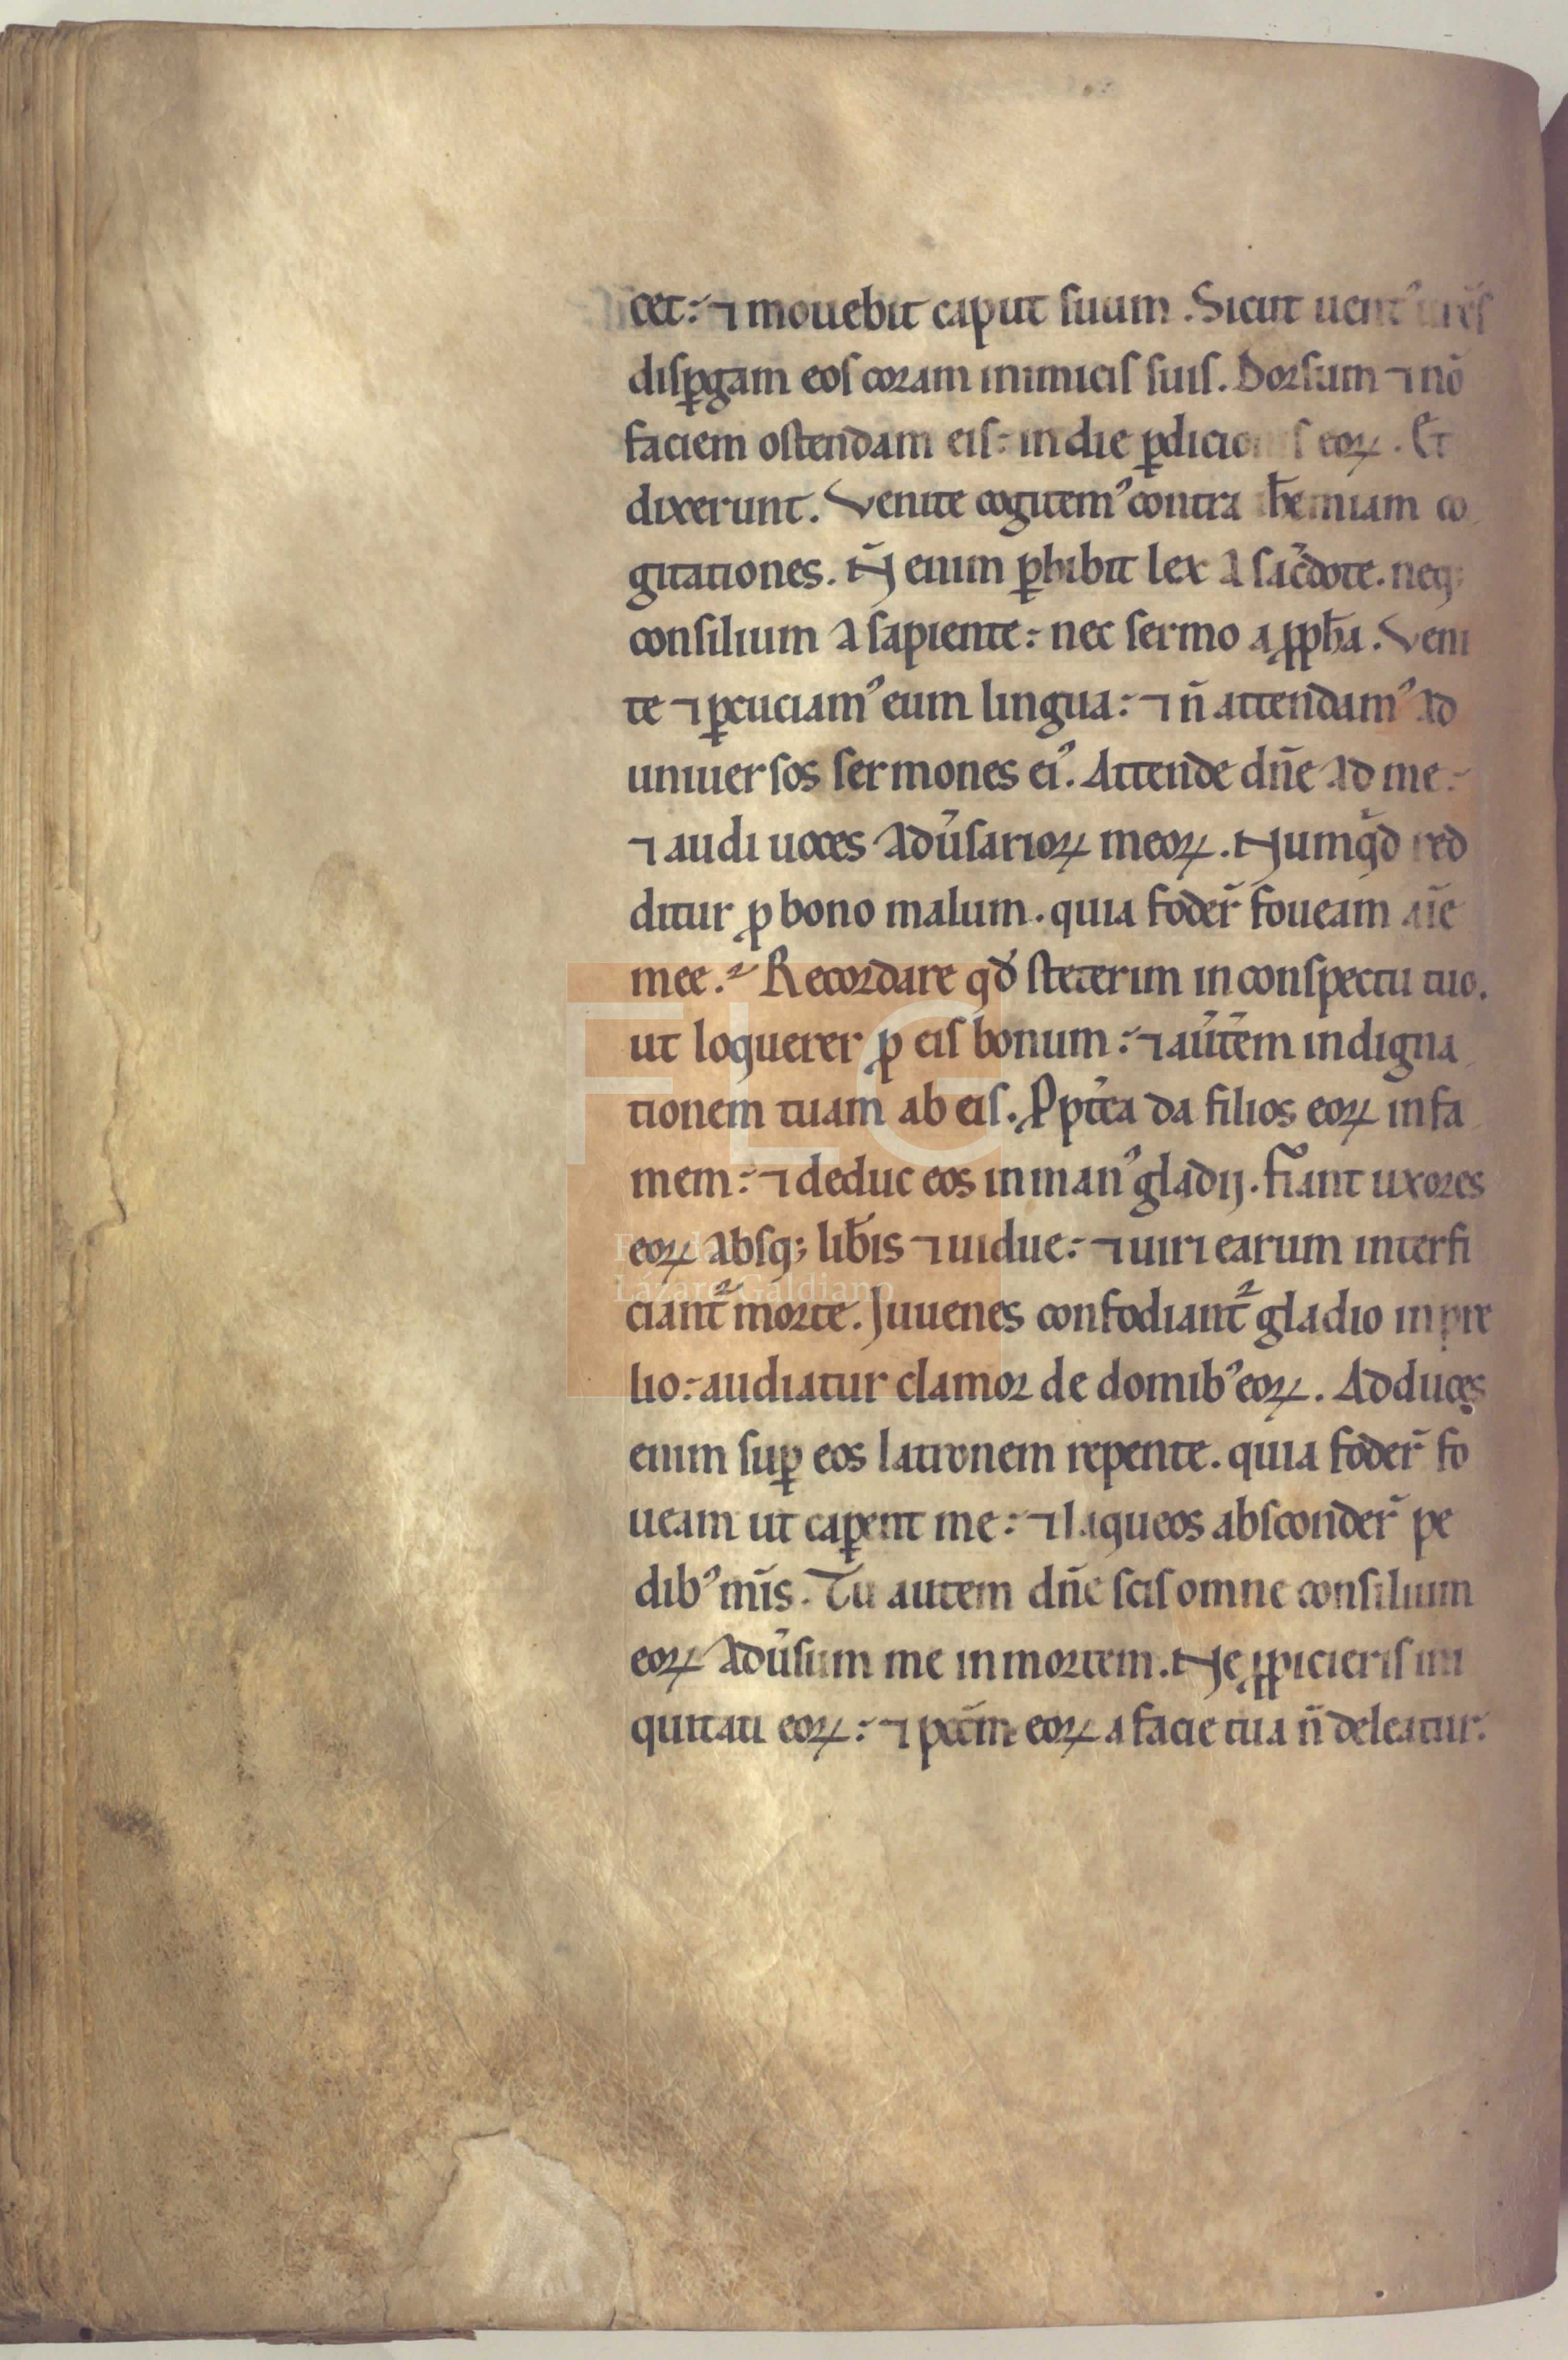 cet: ⁊ mouebit caput suum. Sicut uentꝰ urēs
disꝑgam eos coram inimicis suis. Dorsum ⁊ nō
faciem ostendam eis: in die ꝑdicionis eoꝝ. Et
dixerunt. Venite cogitemꝰ contra ih̄emiam co
gitationes. Ñ enim ꝑhibit lex a sac̄dote. neq;
consilium a sapiente: nec sermo a ꝓph̄a. Veni
te ⁊ ꝑcuciamꝰ eum lingua: ⁊ n̄ attendamꝰ ad
uniuersos sermones eiꝰ. Attende dn̄e ad me:
⁊ audi uoces adū̓sarioꝝ meoꝝ. Numq̇d red
ditur ꝓ bono malum. quia foder̄ foueam aīe
mee. Recordare qđ steterim in conspectu tuo.
ut loquerer ꝓ eis bonum: ⁊ au̓tēm indigna
tionem tuam ab eis. Ꝓpt̓ea da filios eoꝝ in fa
mem: ⁊ deduc eos in manꝰ gladij. fiant uxores
eoꝝ absq; lib̄is ⁊ uidue: ⁊ uiri earum interfi
ciant᷑ morte. Juuenes confodiant᷑ gladio in pre
lio: audiatur clamor de domibꝰ eoꝝ. Adduces
enim suꝑ eos latronem repente. quia foder̄ fo
ueam ut caꝑent me: ⁊ laqueos absconder̄ pe
dibꝰ mīs. Tu autem dn̄e scis omne consilium
eoꝝ adū̓sum me in mortem. Ne ꝓpicieris ini
quitati eoꝝ: ⁊ pcc̄m eoꝝ a facie tua n̄ deleatur.
FLG
Lázaro Galdiano